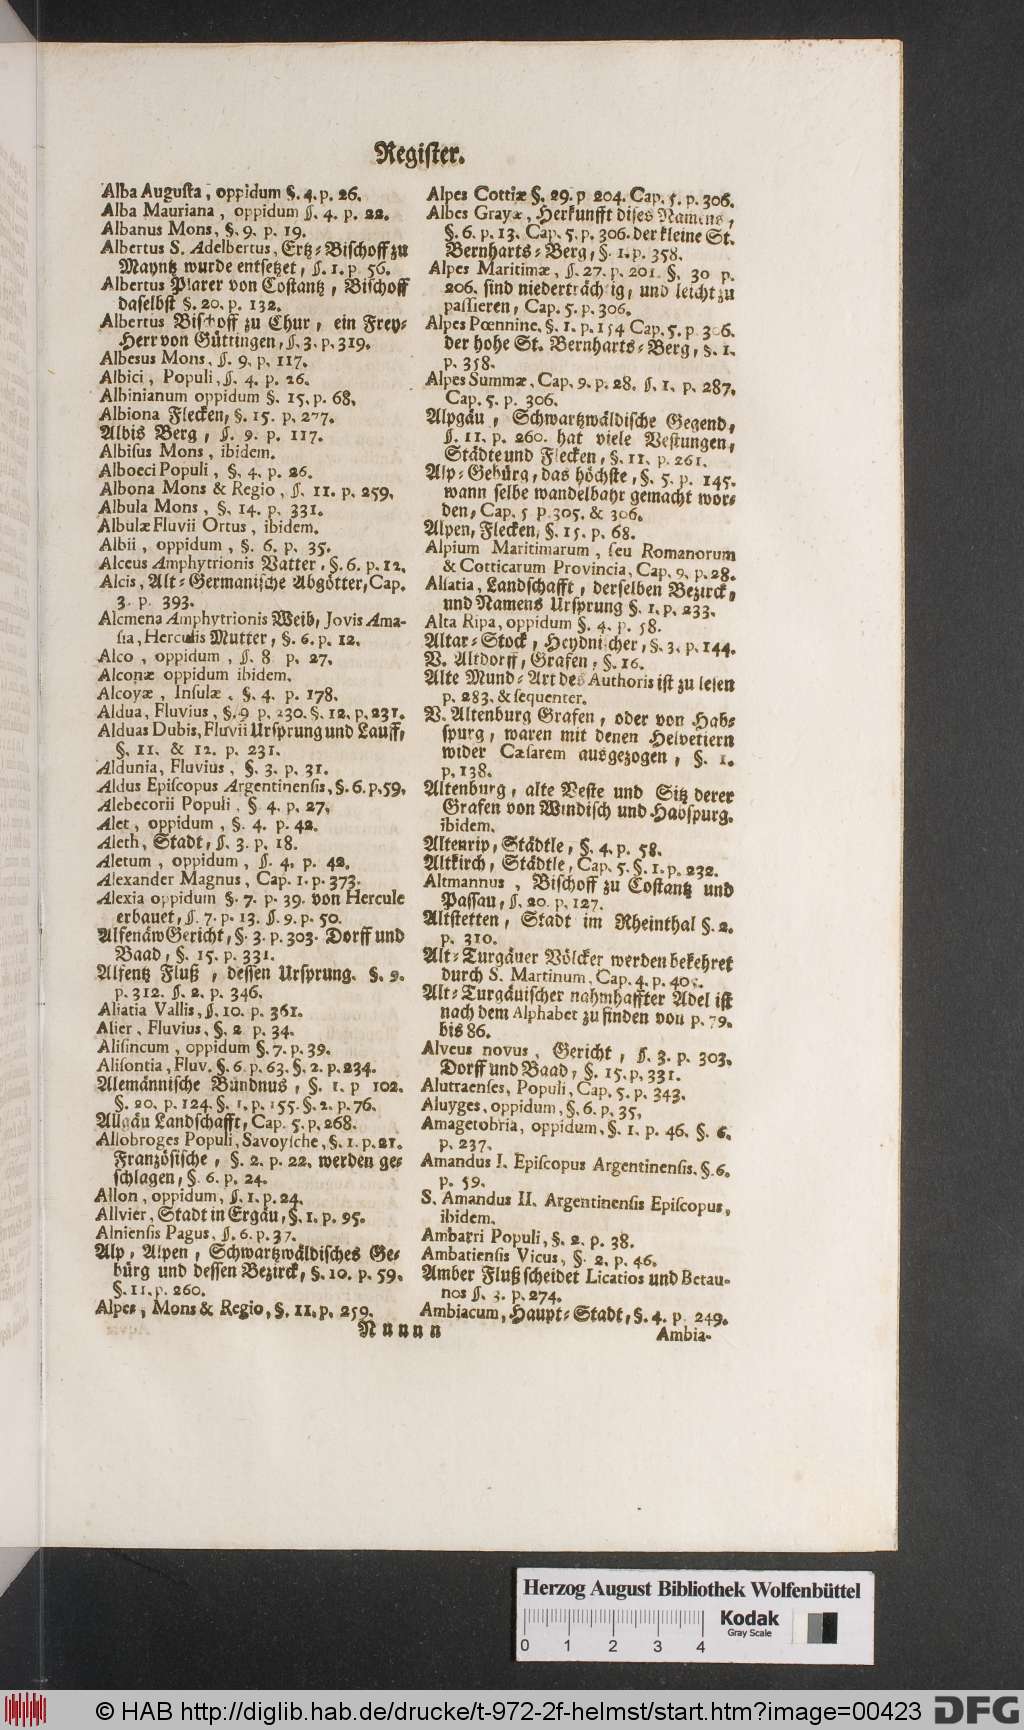 Register.
Alba Augusta, oppidum §. 4. p. 26.
Alba Mauriana, oppidum §. 4. p. 22.
Albanus Mons, §. 9. p. 19.
Albertus S. Adelbertus, Ertz-Bischoff zu
Mayntz wurde entsetzet, §. 1. p. 56.
Albertus Plarer von Costantz, Bischoff
daselbst §. 20. p. 132.
Albertus Bischoff zu Chur, ein Frey-
Herr von Güttingen, §. 3. p. 319.
Albesus Mons, §. 9. p. 117.
Albici, Populi, §. 4. p. 26.
Albinianum oppidum §. 15. p. 68.
Albiona Flecken, §. 15. p. 277.
Albis Berg, §. 9. p. 117.
Albisus Mons, ibidem.
Alboeci Populi, §. 4. p. 26.
Albona Mons & Regio, §. 11. p. 259.
Albula Mons, §. 14. p. 331.
Albulæ Fluvii Ortus, ibidem.
Albii, oppidum, §. 6. p. 35.
Alceus Amphytrionis Vatter, §. 6. p. 12.
Alcis, Alt-Germanische Abgötter, Cap.
3. p. 393.
Alcmena Amphytrionis Weib, Jovis Ama-
sia, Herculis Mutter, §. 6. p. 12.
Alco, oppidum, §. 8 p. 27.
Alconæ oppidum ibidem.
Alcoyæ, Insulæ, §. 4. p. 178.
Aldua, Fluvius, §. 9 p. 230. §. 12. p. 231.
Alduas Dubis, Fluvii Ursprung und Lauff,
§. 11. & 12. p. 231.
Aldunia, Fluvius, §. 3. p. 31.
Aldus Episcopus Argentinensis, §. 6. p. 59.
Alebecorii Populi, §. 4. p. 27.
Alet, oppidum, §. 4. p. 42.
Aleth, Stadt, §. 3. p. 18.
Aletum, oppidum, §. 4. p. 42.
Alexander Magnus, Cap. 1. p. 373.
Alexia oppidum §. 7. p. 39. von Hercule
erbauet, §. 7. p. 13. §. 9. p. 50.
Alfenäw Gericht, §. 3. p. 303. Dorff und
Baad, §. 15. p. 331.
Alfentz Fluß, dessen Ursprung. §. 9.
p. 312. §. 2. p. 346.
Aliatia Vallis, §. 10. p. 361.
Alier, Fluvius, §. 2 p. 34.
Alisincum, oppidum §. 7. p. 39.
Alisontia, Fluv. §. 6 p. 63. §. 2. p. 234.
Alemännische Bündnus, §. 1. p 102.
§. 20. p. 124. §. 1. p. 155. §. 2. p. 76.
Allgäu Landschafft, Cap. 5. p. 268.
Allobroges Populi, Savoysche, §. 1. p. 21.
Französische, §. 2. p. 22. werden ge-
schlagen, §. 6. p. 24.
Allon, oppidum, §. 1. p. 24.
Allvier, Stadt in Ergäu, §. 1. p. 95.
Alniensis Pagus, §. 6. p. 37.
Alp, Alpen, Schwartzwäldisches Ge-
bürg und dessen Bezirck, §. 10. p. 59.
§. 11. p. 260.
Alpes, Mons & Regio, §. 11. p. 259.
Alpes Cottiæ §. 29. p 204. Cap. 5. p. 306.
Albes Grayæ, Herkunfft dises Namens,
§. 6. p. 13. Cap. 5. p. 306. der kleine St.
Bernharts-Berg, §. 1. p. 358.
Alpes Maritimæ, §. 27. p. 201 §. 30 p.
206. sind niederträchtig, und leicht zu
passieren, Cap. 5. p. 306.
Alpes Pœnninæ, §. 1. p. 154 Cap. 5. p. 306.
der hohe St. Bernharts-Berg, §. 1.
p. 358.
Alpes Summæ, Cap. 9. p. 28. §. 1. p. 287.
Cap. 5. p. 306.
Alpgäu, Schwartzwäldische Gegend,
§. 11. p. 260. hat viele Vestungen,
Städte und Flecken, §. 11. p. 261.
Alp-Gebürg, das höchste, §. 5. p. 145.
wann selbe wandelbahr gemacht wor-
den, Cap. 5 p. 305. & 306.
Alpen, Flecken, §. 15. p. 68.
Alpium Maritimarum, seu Romanorum
& Cotticarum Provincia, Cap. 9. p. 28.
Alsatia, Landschafft, derselben Bezirck,
und Namens Ursprung §. 1. p. 233.
Alta Ripa, oppidum §. 4. p. 58.
Altar-Stock, Heydnischer, §. 3. p. 144.
V. Altdorff, Grafen, §. 16.
Alte Mund-Art des Authoris ist zu lesen
p. 283. & sequenter.
V. Altenburg Grafen, oder von Hab-
spurg, waren mit denen Helvetiern
wider Cæsarem ausgezogen, §. 1.
p. 138.
Altenburg, alte Veste und Sitz derer
Grafen von Windisch und Habspurg.
ibidem.
Altenrip, Städtle, §. 4. p. 58.
Altkirch, Städtle, Cap. 5. §. 1. p. 232.
Altmannus, Bischoff zu Costantz und
Passau, §. 20. p. 127.
Altstetten, Stadt im Rheinthal §. 2.
p. 310.
Alt-Turgäuer Völcker werden bekehret
durch S. Martinum, Cap. 4. p. 405.
Alt-Turgäuischer nahmhaffter Adel ist
nach dem Alphabet zu finden von p. 79.
bis 86.
Alveus novus, Gericht, §. 3. p. 303.
Dorff und Baad, §. 15. p. 331.
Alutraenses, Populi, Cap. 5. p. 343.
Aluyges, oppidum, §. 6. p. 35.
Amagetobria, oppidum, §. 1. p. 46. §. 6.
p. 237.
Amandus I. Episcopus Argentinensis, §. 6.
p. 59.
S. Amandus II. Argentinensis Episcopus,
ibidem.
Ambarri Populi, §. 2. p. 38.
Ambatiensis Vicus, §. 2. p. 46.
Amber Fluß scheidet Licatios und Betau-
nos §. 3. p. 274.
Ambiacum, Haupt-Stadt, §. 4. p 249.
Nnnnn
Ambia-
Herzog August Bibliothek Wolfenbüttel
Kodak
Gray Scale
0 1 2 3 4
© HAB http://diglib.hab.de/drucke/t-972-2f-helmst/start.htm?image=00423
DFG